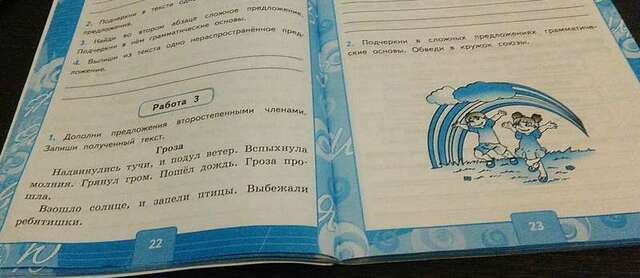 2. Подчеркни в тексте одно
предложение.
3. Найди во втором абзаце сложное предложение.
Подчеркни в нём грамматические основы.
4. Выпиши из текста одно нераспространённое пред-
ложение.
Работа 3
1. Дополни предложения второстепенными членами.
Запиши полученный текст.
Гроза
Надвинулись тучи, и подул ветер. Вспыхнула
молния. Грянул гром. Пошёл дождь. Гроза про-
шла.
Взошло солнце, и запели птицы. Выбежали
ребятишки.
22
2. Подчеркни в сложных предложениях грамматиче-
ские основы. Обведи в кружок союзы.
23